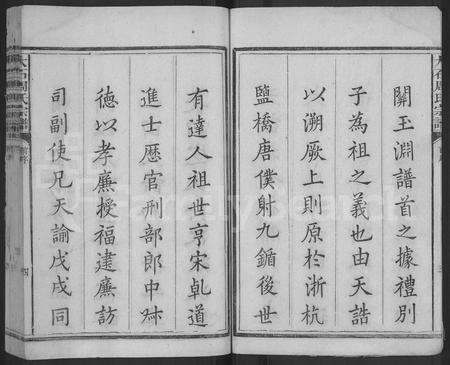 關玉淵譜首之據禮別
子為祖之義也由天誥
以溯厥上則原於浙杭
鹽橋唐僕射九鍎後世
有達人祖世亨宋乹道
進士歴官刑部郎中𡥉
德以孝廉授福建廉訪
司副使兄天諭戊戌同